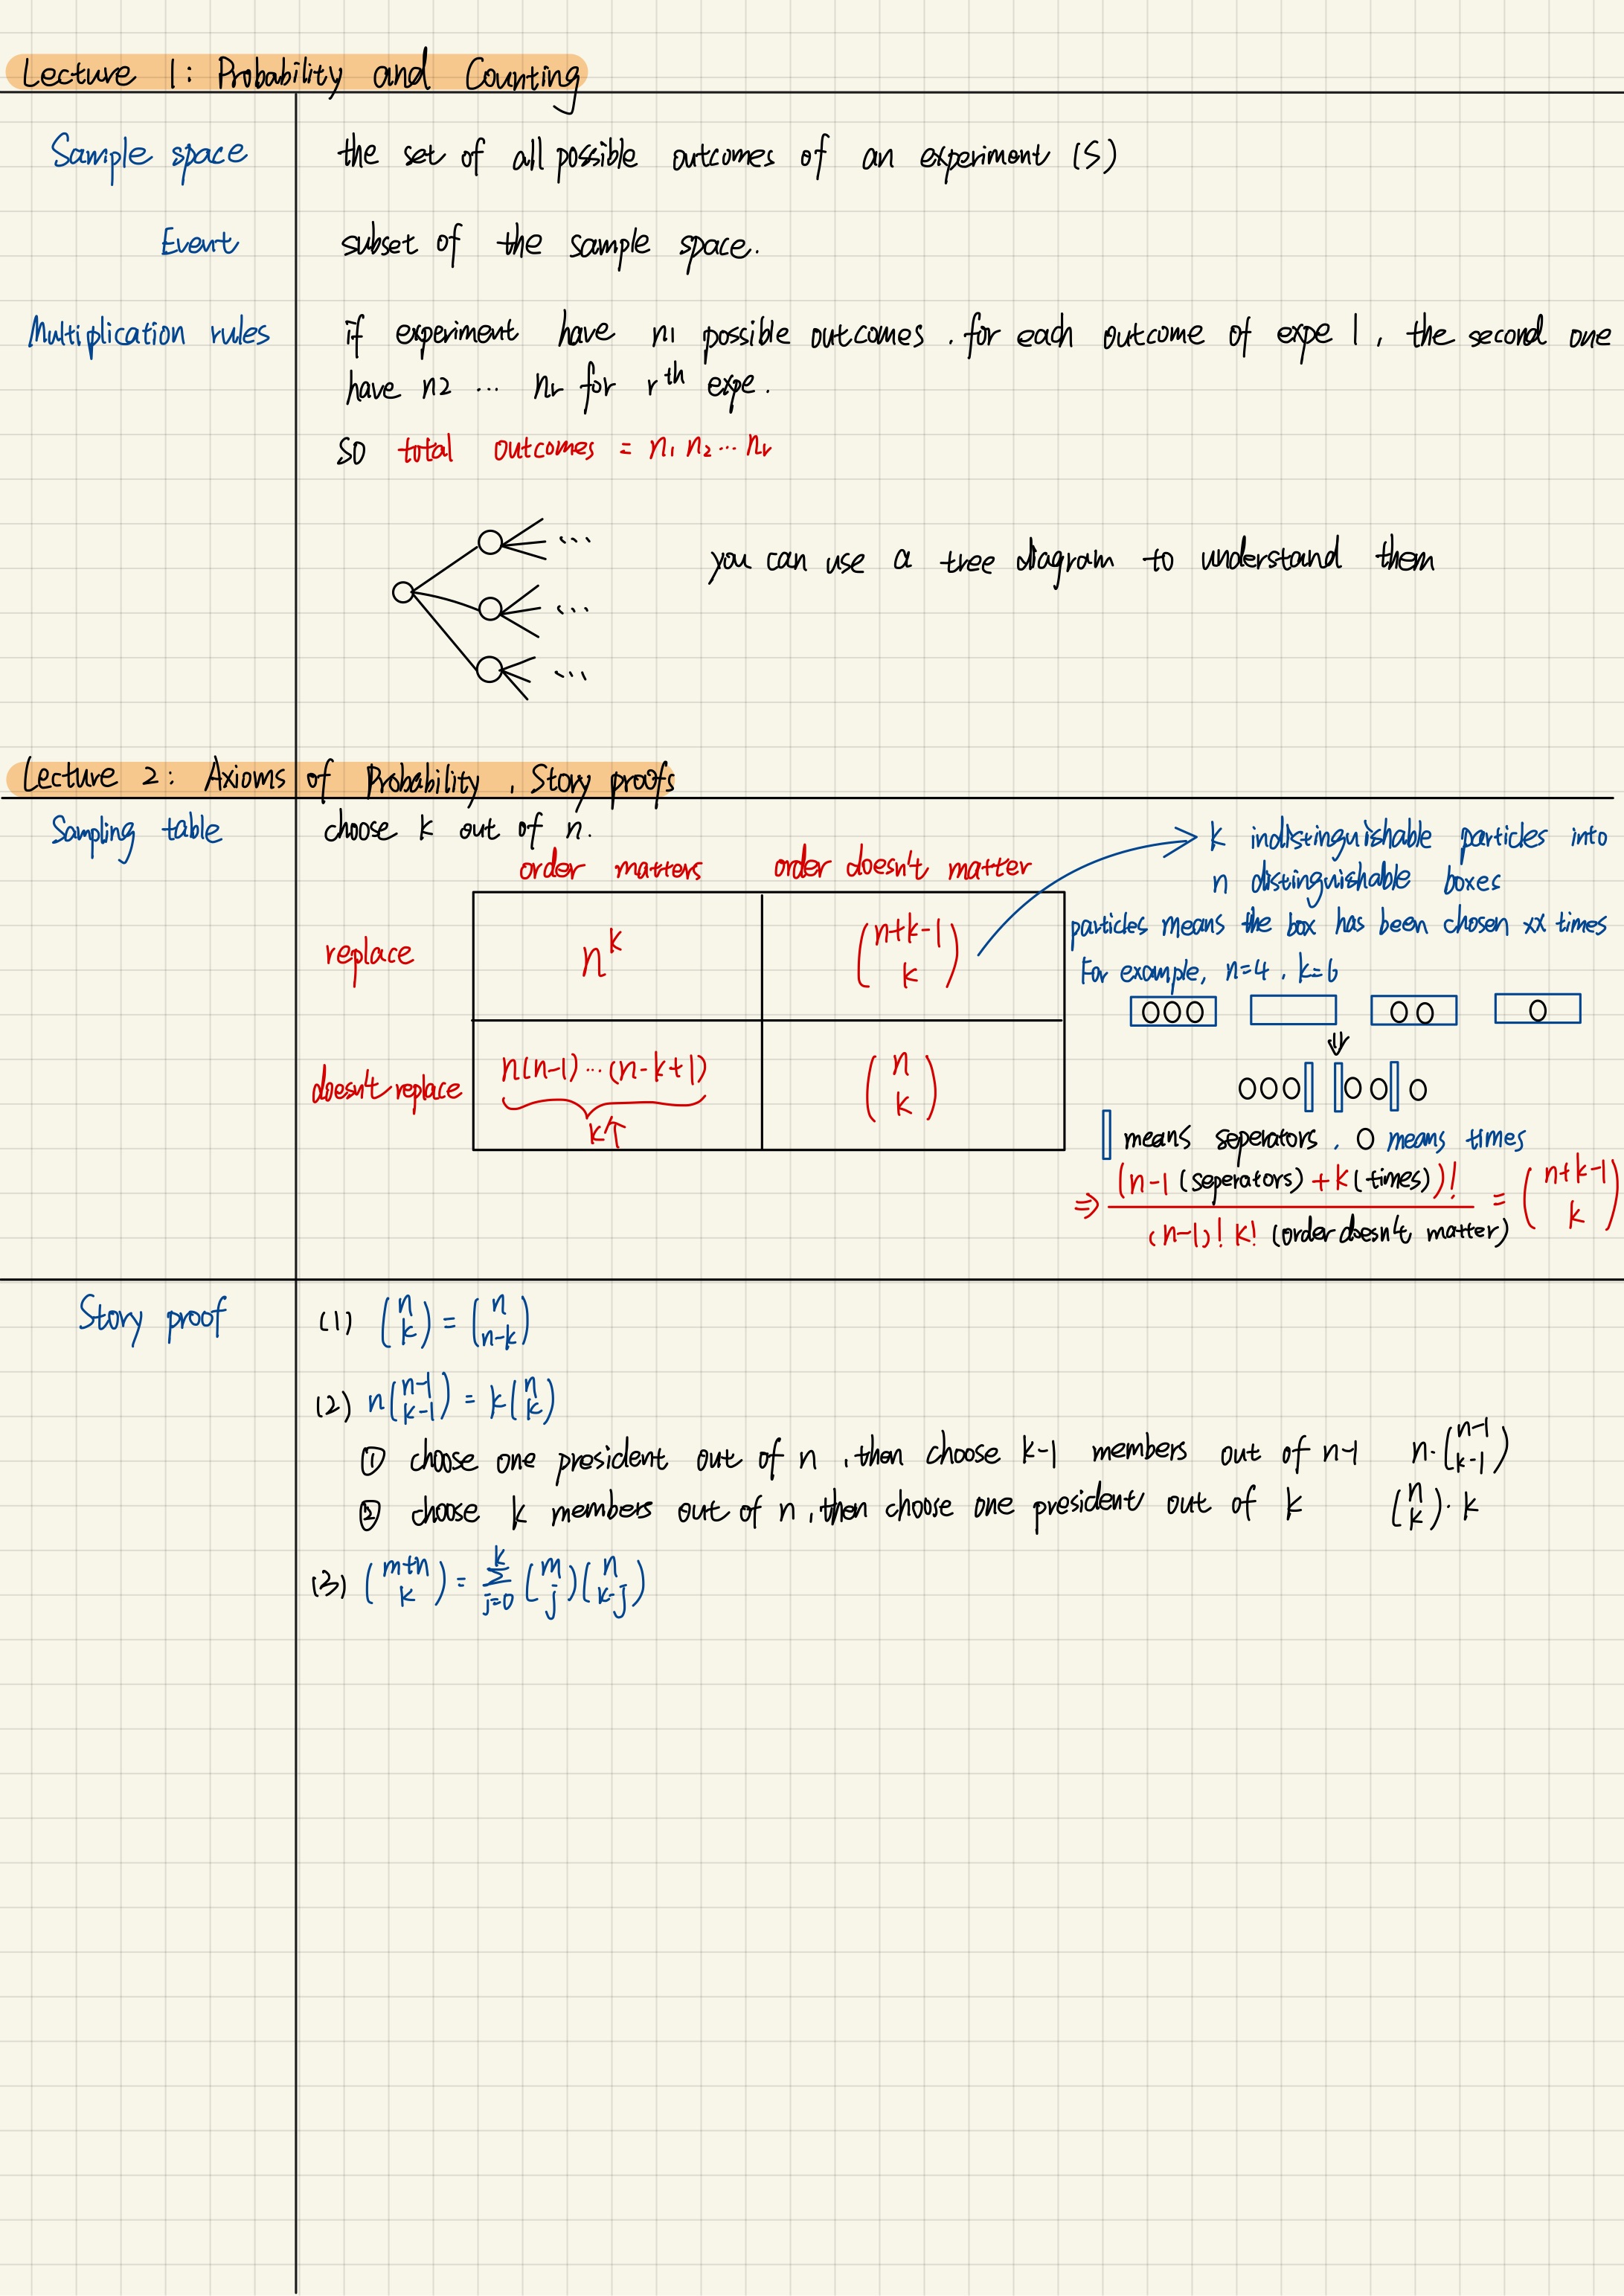 Lecture 1: Probability and Counting
Sample space the set of all possible outcomes of an experiment (S)
Event subset of the sample space.
Multiplication rules if experiment have n1 possible outcomes. for each outcome of expe 1, the second one
have n2 ... nr for r^th expe.
so total outcomes = n₁ n₂ ... nᵣ
...
you can use a tree diagram to understand them
...
...
Lecture 2: Axioms of Probability, Story proofs
Sampling table choose k out of n.
order matters order doesn't matter
replace n^k (n+k-1 k)
doesn't replace n(n-1)...(n-k+1) (n k)
k个
k indistinguishable particles into
n distinguishable boxes
particles means the box has been chosen xx times
For example, n=4, k=6
⇓
means seperators, O means times
⇒ (n-1 (seperators) + k (times))! / (n-1)! k! (order doesn't matter) = (n+k-1 k)
Story proof (1) (n k) = (n n-k)
(2) n(n-1 k-1) = k(n k)
① choose one president out of n, then choose k-1 members out of n-1 n·(n-1 k-1)
② choose k members out of n, then choose one president out of k (n k)·k
(3) (m+n k) = Σ_{j=0}^{k} (m j)(n k-j)